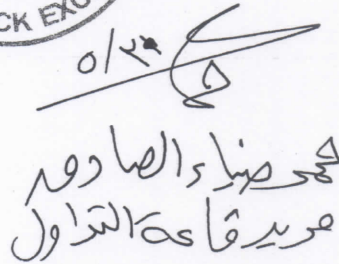 CK EXC
محمد ضياء الصادق
مدير قاعة التداول